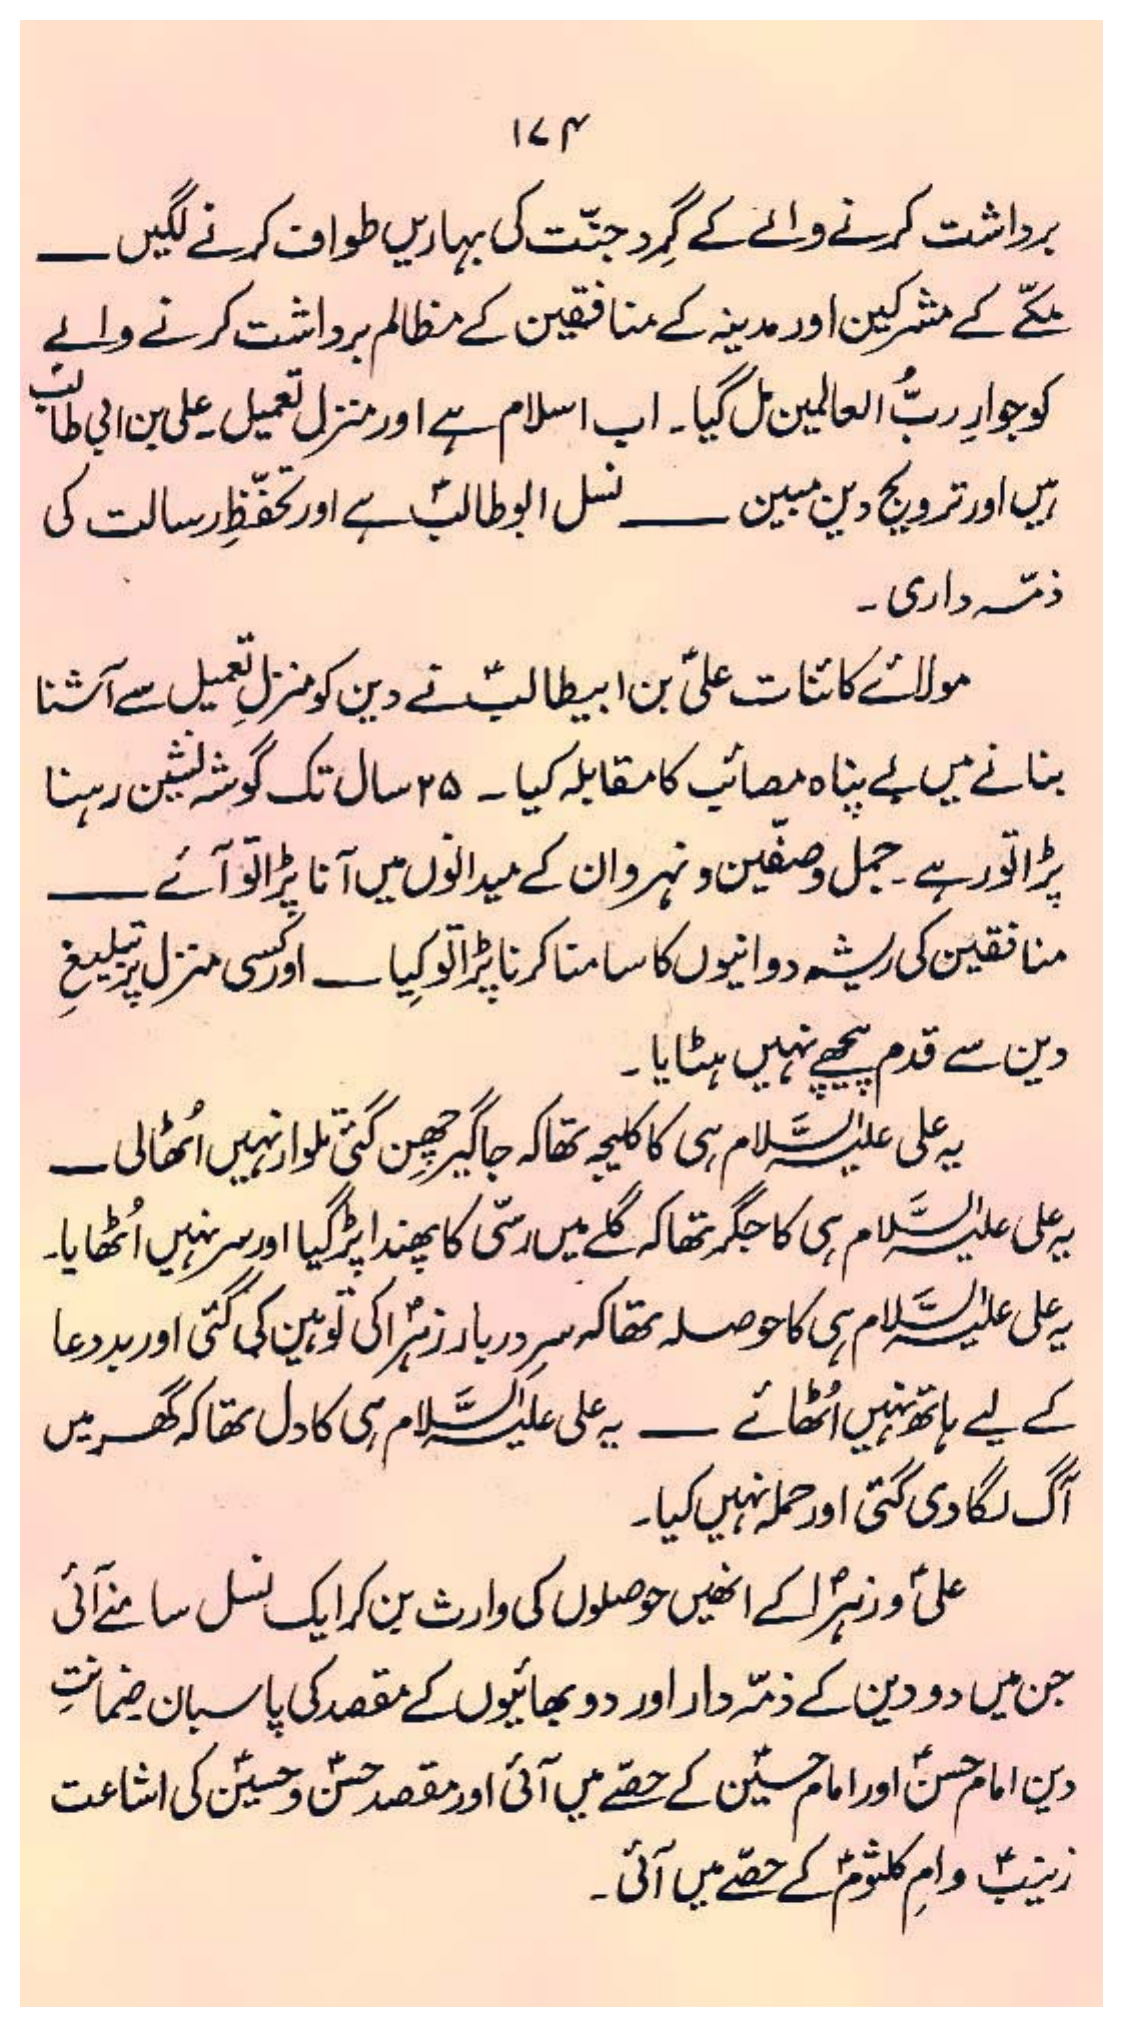 ۱۷۴
برداشت کرنے والے کے گِرد جنّت کی بہاریں طواف کرنے لگیں ــــ
مکّے کے مشرکین اور مدینہ کے منافقین کے مظالم برداشت کرنے والے
کو جوارِ ربُّ العالمین مل گیا۔ اب اسلام ہے اور منزل تعمیل۔ علی بن ابی طالبؑ
ہیں اور ترویج دین مبین ــــ نسل ابوطالبؑ ہے اور تحفّظِ رسالت کی
ذمّہ داری۔
مولائے کائنات علیؑ بن ابیطالبؑ نے دین کو منزلِ تعمیل سے آشنا
بنانے میں بے پناہ مصائب کا مقابلہ کیا۔ ۲۵ سال تک گوشہ نشین رہنا
پڑا تو رہے۔ جمل و صفّین و نہروان کے میدانوں میں آنا پڑا تو آئے ــــ
منافقین کی ریشہ دوانیوں کا سامنا کرنا پڑا تو کیا ــــ اور کسی منزل پر تبلیغِ
دین سے قدم پیچھے نہیں ہٹایا۔
یہ علی علیہ السَّلام ہی کا کلیجہ تھا کہ جاگیر چھِن گئی تلوار نہیں اُٹھالی ــــ
یہ علی علیہ السَّلام ہی کا جگر تھا کہ گلے میں رسّی کا پھندا پڑ گیا اور سر نہیں اُٹھایا۔
یہ علی علیہ السَّلام ہی کا حوصلہ تھا کہ سرِ دربار زہرؑا کی توہین کی گئی اور بددعا
کے لیے ہاتھ نہیں اُٹھائے ــــ یہ علی علیہ السَّلام ہی کا دل تھا کہ گھر میں
آگ لگا دی گئی اور حملہ نہیں کیا۔
علیؑ و زہرؑا کے انھیں حوصلوں کی وارث بن کر ایک نسل سامنے آئی
جن میں دو دین کے ذمّہ دار اور دو بھائیوں کے مقصد کی پاسبان ضمانتِ
دین امام حسنؑ اور امام حسینؑ کے حصّے میں آئی اور مقصد حسنؑ و حسینؑ کی اشاعت
زینبؑ و امِ کلثومؑ کے حصّے میں آئی۔